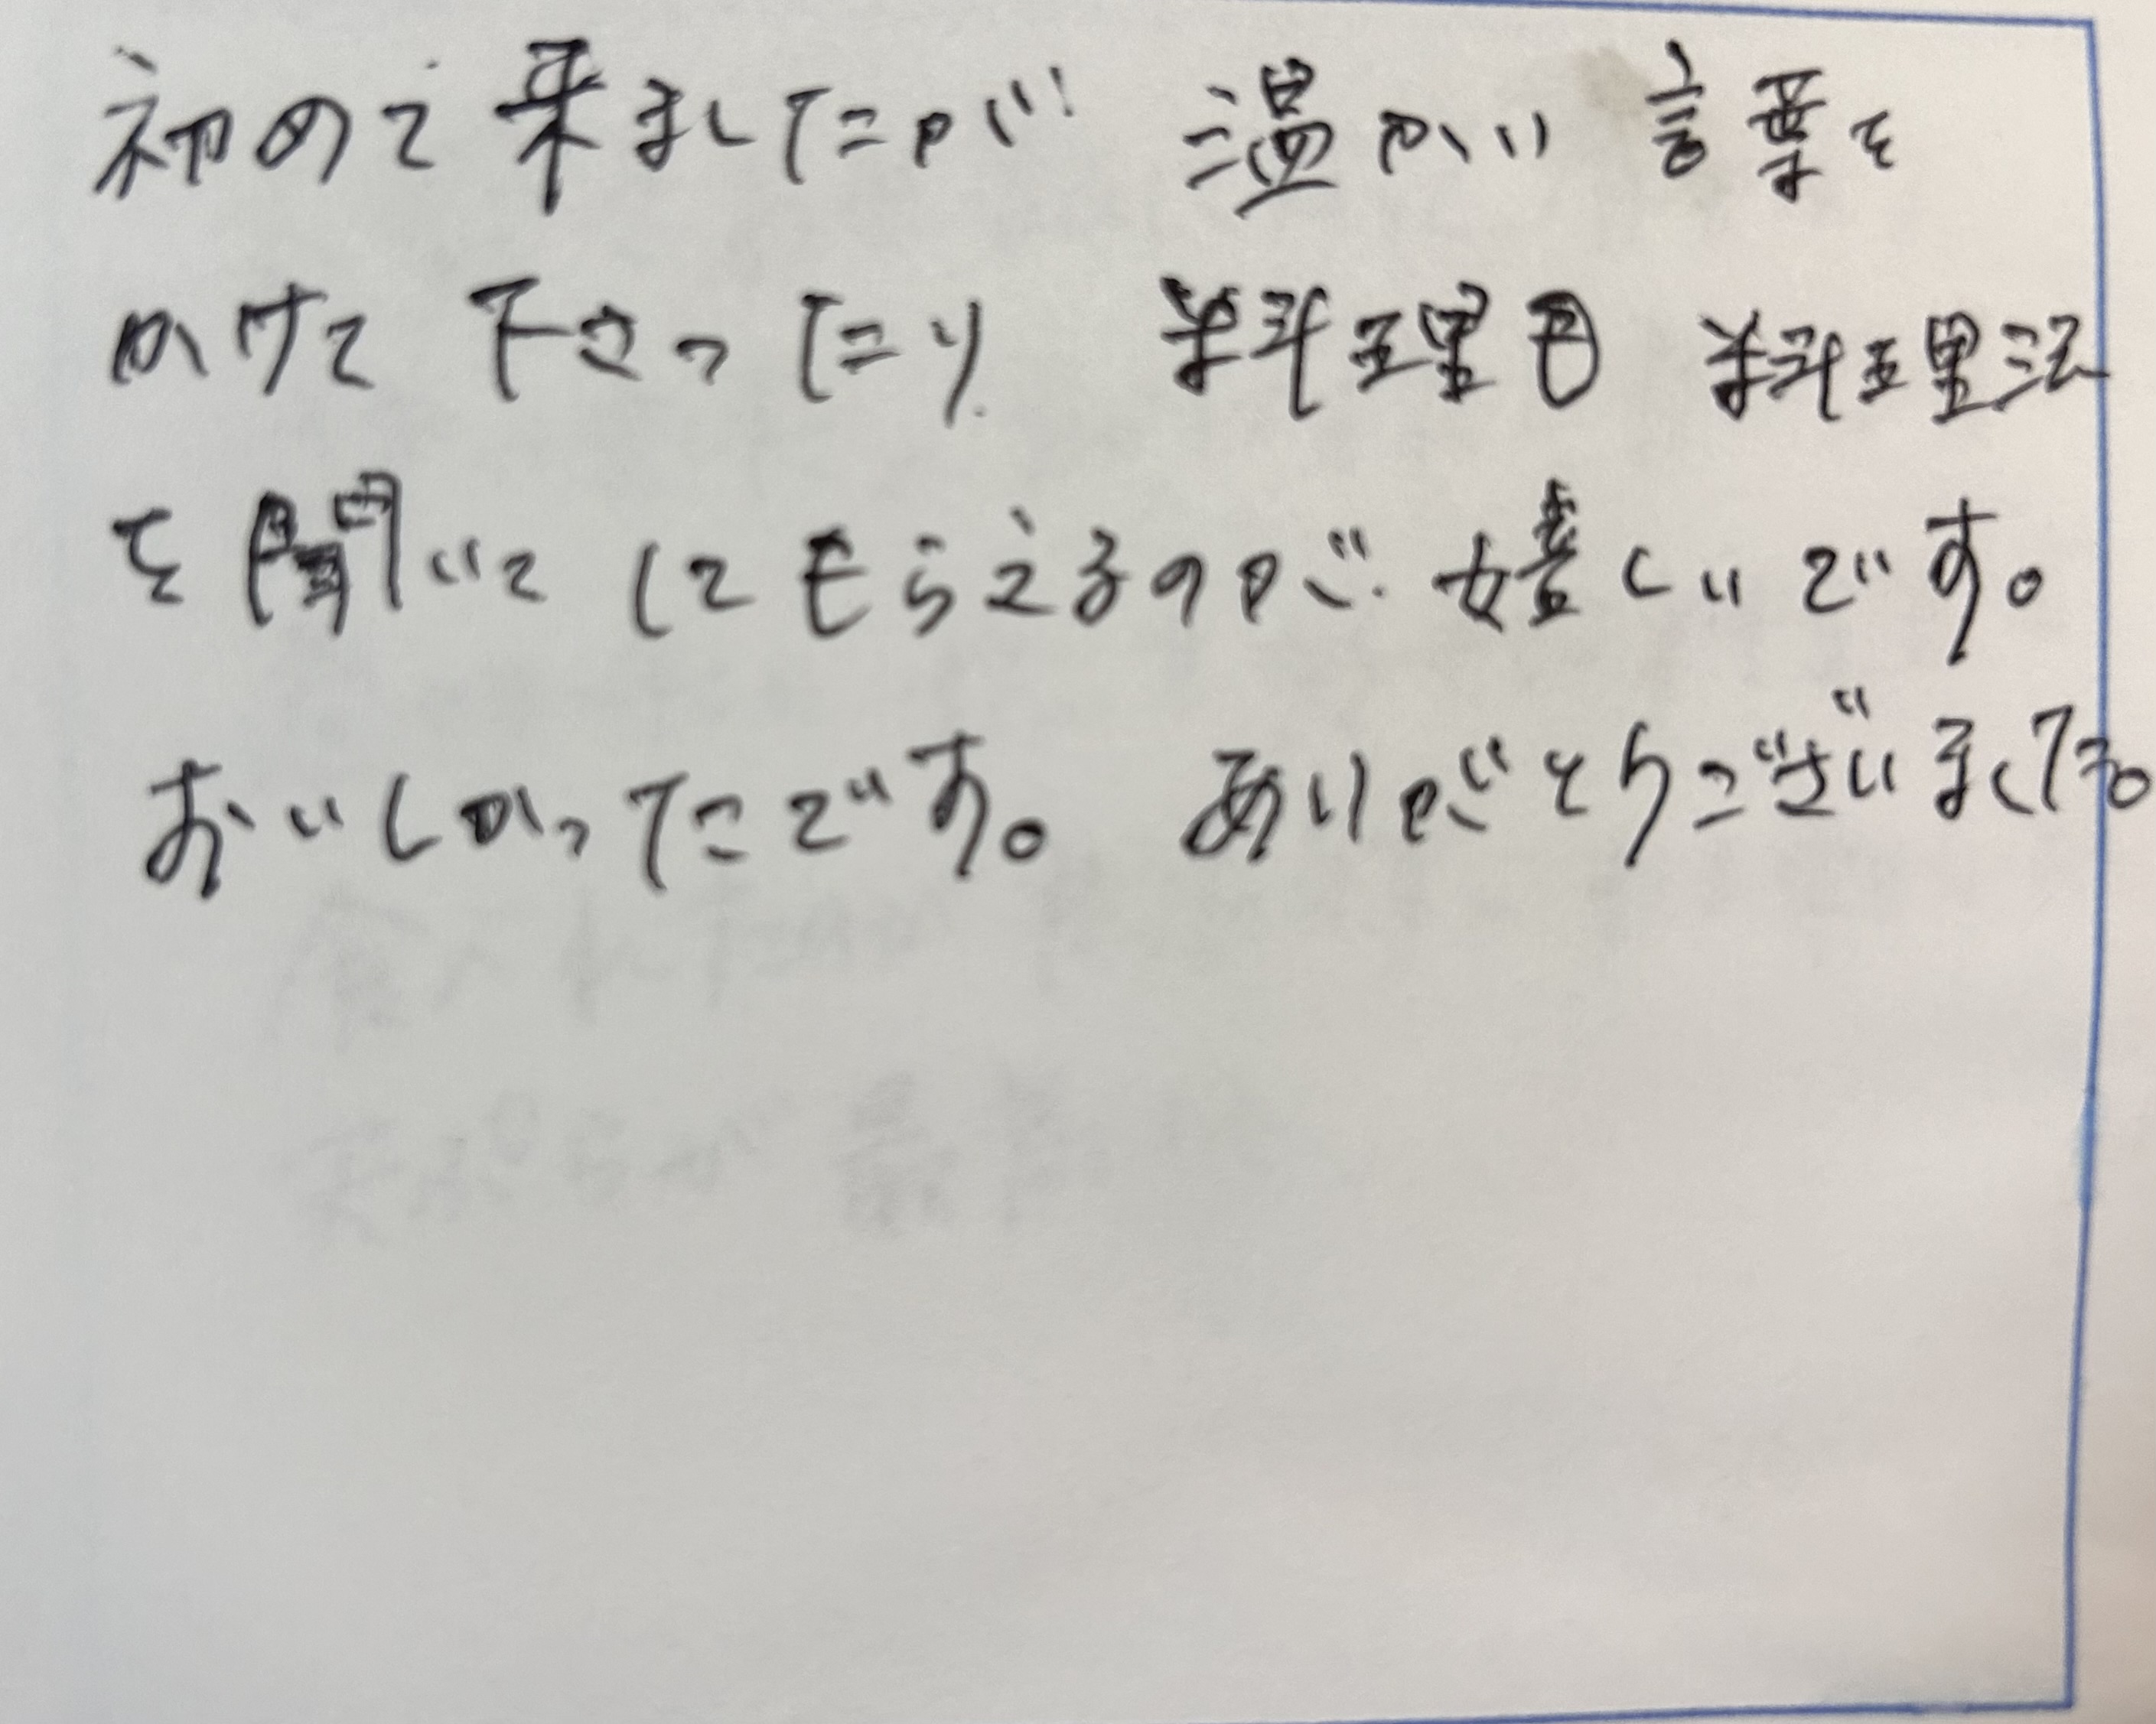 初めて来ましたが 温かい 言葉を
かけて下さったり 料理も 料理法
を聞いてしてもらえるのが嬉しいです。
おいしかったです。 ありがとうございました。